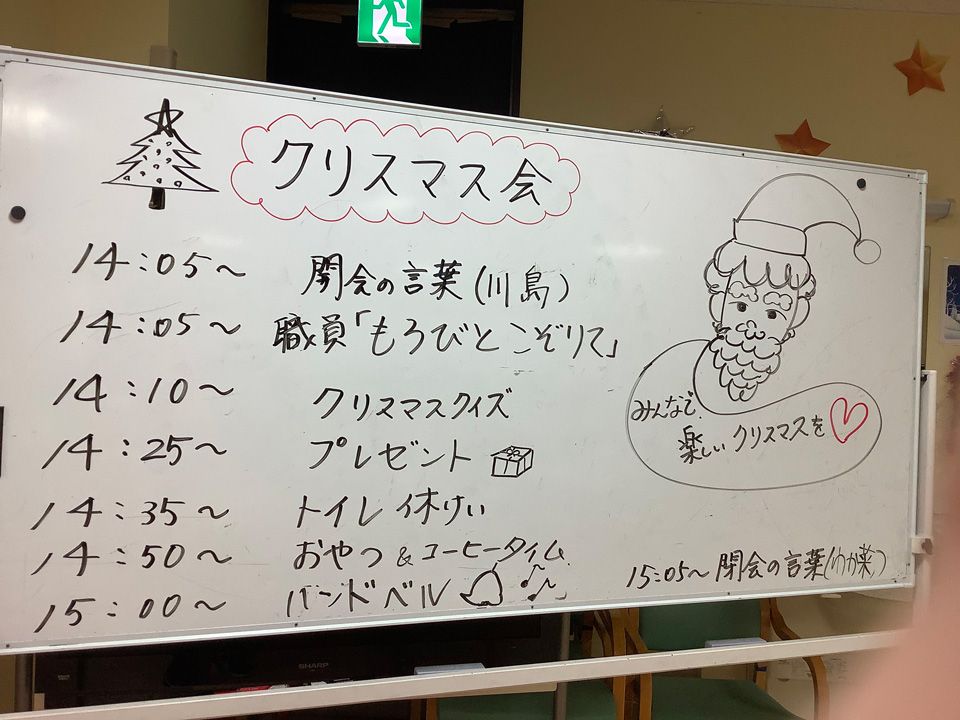 クリスマス会
14:05～ 開会の言葉(川島)
14:05～ 職員「もろびとこぞりて」
14:10～ クリスマスクイズ
14:25～ プレゼント
14:35～ トイレ休けい
14:50～ おやつ&コーヒータイム
15:00～ ハンドベル
みんなで
楽しいクリスマスを
15:05～ 閉会の言葉(わか菜)
SHARP